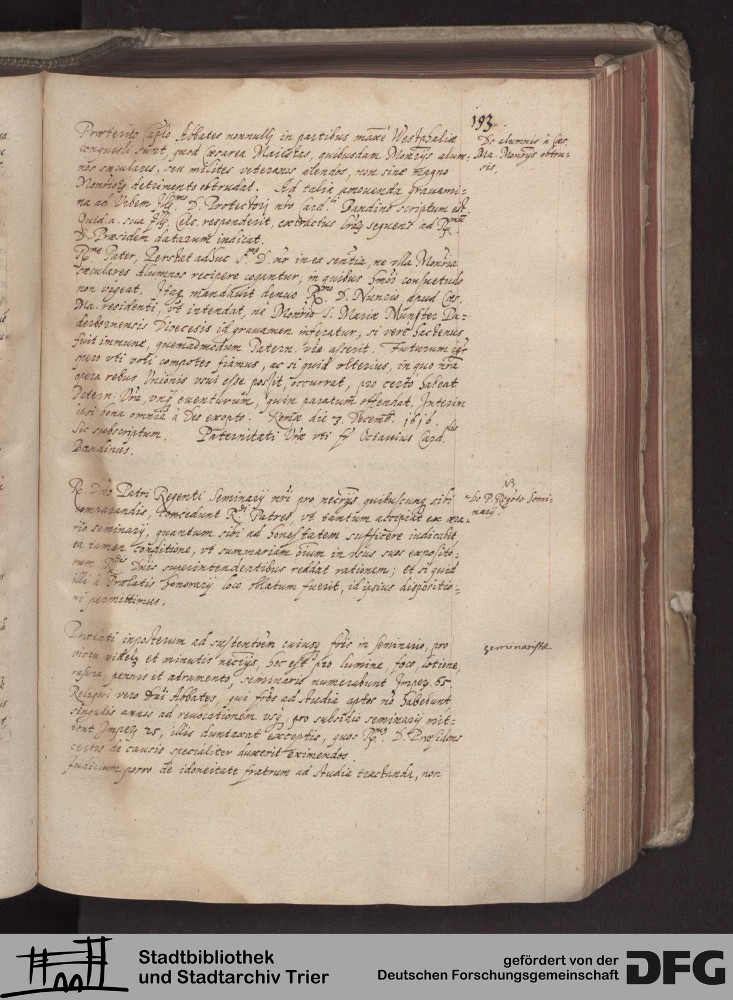 193.
Præterito Caplo Abbates nonnullj in partibus maxe Westphaliæ
conquesti sunt, quod Cæsarea Maiestas, quibusdam Monrijs alum-
nos sæculares, seu milites veteranos alendos, non sine magno
Monrioꝝ detrimento obtrudat. Ad talia amouenda grauami-
na ad Vrbem Illmo D. Protectorj nro Card. Bandino scriptum est.
Quid a. sua Illma Cels. responderit, extractus sequens ad Rmum
D. Præsidem datarum indicat.
De alumnis à Cæs.
Ma. Monrijs obtru-
sis.
Rme Pater, Perstat adhuc Smus D. nr in ea sentia, ne vlla Monria
sæculares Alumnos recipere cogantur, in quibus hmoi consuetudo
non vigeat. Itaq mandauit denuo Rmo D. Nuncio apud Cæs.
Ma. residenti, vt intendat, ne Monrio S. Mariæ Munster Pa-
derbornensis Diocesis id grauamen inferatur, si verè hactenus
fuit immune, quemadmodum Patern. Vra asserit. Futurum igr
spero vti voti compotes fiamus, ac si quid vlterius, in quo nra
opera rebus Vnionis vsui esse possit, occurrat, pro certo habeat
Patern. Vra, vnq euenturum, quin paratum offendat. Interim
ipsi bona omnia à Deo exopto. Romæ die 3. Decemb. 1616.
Sic subscriptum. Paternitati Vræ vti fr Octauius Card.lis
Bandinus.
R. Dno Patri Regenti Seminarij nri pro necrijs quibuscunq sibi
comparandis, concedunt Rdi Patres, vt tantum accipiat ex æra-
rio seminarij, quantum sibi ad honestatem sufficere indicabit,
ea tamen conditione, vt summariam oium in vsus suos exposito-
rum Rdis Dnis superintendentibus reddat rationem; et si quid
illi à Prælatis honorarij loco oblatum fuerit, id ipsius dispositio-
ni permittimus.
NB
De P. Regente Semi-
narij.
Prælati inposterum ad sustentoem cuiusq fris in seminario, pro
victu videlq et minutis necrijs, hoc est pro lumine, foco, lotione,
rasura, pennis et atramento, seminaris numerabunt Imper. 65.
Reliqui vero Dni Abbates, qui fres ad Studia aptos nō habebunt
singulis annis ad reuocationem vsq, pro subsidio seminarij mit-
tent Imper. 25, illis duntaxat exceptis, quos Rmus D. Præsidens
certis de causis specialiter duxerit eximendos.
Iudicium porro de idoneitate fratrum ad Studia tractanda, non
Seminaristæ
Stadtbibliothek
und Stadtarchiv Trier
gefördert von der
Deutschen Forschungsgemeinschaft
DFG